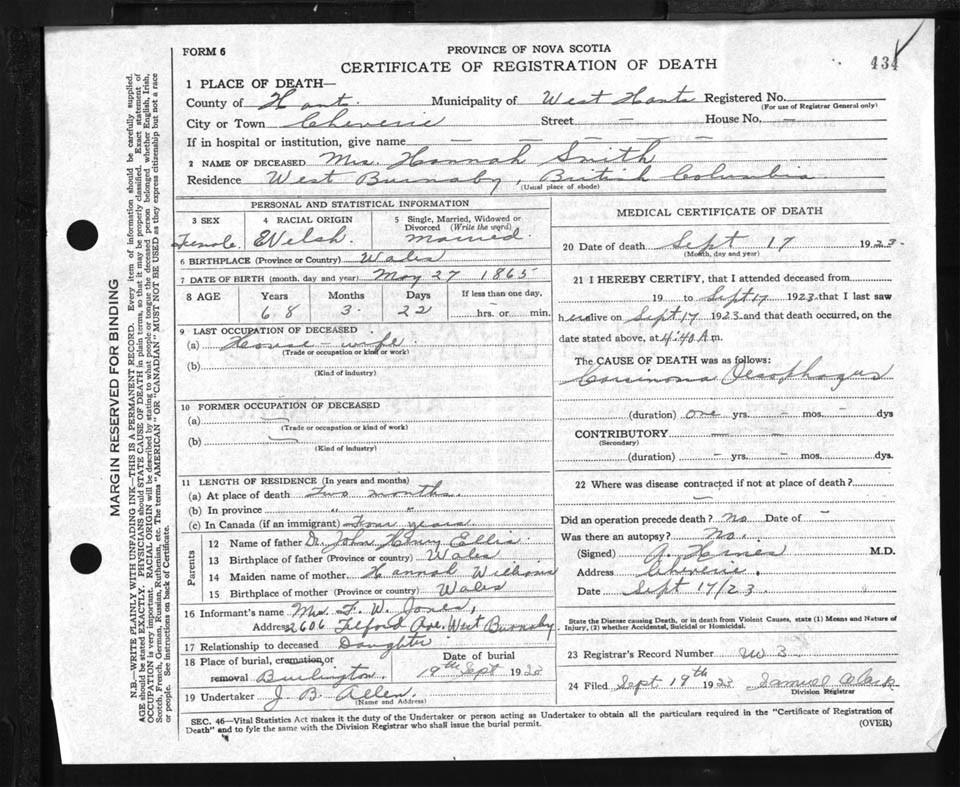 FORM 6
PROVINCE OF NOVA SCOTIA
CERTIFICATE OF REGISTRATION OF DEATH
434
1 PLACE OF DEATH—
County of Hants. Municipality of West Hants Registered No.
(For use of Registrar General only)
City or Town Cheverie Street — House No. —
If in hospital or institution, give name — — — — —
2 NAME OF DECEASED Mrs. Hannah Smith
Residence West Burnaby, British Columbia
(Usual place of abode)
PERSONAL AND STATISTICAL INFORMATION
3 SEX
Female.
4 RACIAL ORIGIN
Welsh.
5 Single, Married, Widowed or
Divorced (Write the word)
Married.
6 BIRTHPLACE (Province or Country) Wales
7 DATE OF BIRTH (month, day and year) May 27 1865
8 AGE
Years Months Days If less than one day,
68 3. 22 hrs. or min.
9 LAST OCCUPATION OF DECEASED
(a) House-wife.
(Trade or occupation or kind or work)
(b)
(Kind of industry)
10 FORMER OCCUPATION OF DECEASED
(a) —
(Trade or occupation or kind of work)
(b) —
(Kind of industry)
11 LENGTH OF RESIDENCE (In years and months)
(a) At place of death Two months.
(b) In province " "
(c) In Canada (if an immigrant) Four years
Parents
12 Name of father Dr. John Henry Ellis
13 Birthplace of father (Province or country) Wales
14 Maiden name of mother. Hannah Williams
15 Birthplace of mother (Province or country) Wales
16 Informant's name Mrs F. W. Jones,
Address 2606 Telford Ave. West Burnaby
17 Relationship to deceased Daughter
18 Place of burial, cremation, or
removal Burlington.
Date of burial
19th Sept 1923
19 Undertaker J. B. Allen.
(Name and Address)
MEDICAL CERTIFICATE OF DEATH
20 Date of death Sept 17 1923.
(Month, day and year)
21 I HEREBY CERTIFY, that I attended deceased from
19 to Sept 17 1923 that I last saw
her alive on Sept 17 1923 and that death occurred, on the
date stated above, at 4:40 A m.
The CAUSE OF DEATH was as follows:
Carsinoma Oesophagus
(duration) one yrs. – mos. – dys
CONTRIBUTORY — —
(Secondary)
(duration) – yrs. – mos. dys.
22 Where was disease contracted if not at place of death?
—
Did an operation precede death? No Date of –
Was there an autopsy? No.
(Signed) J. Hines M.D.
Address Cheverie.
Date Sept 17/23
State the Disease causing Death, or in death from Violent Causes, state (1) Means and Nature of
Injury, (2) whether Accidental, Suicidal or Homicidal.
23 Registrar's Record Number 3
24 Filed Sept 19th 1923 Samuel
Division Registrar
SEC. 46—Vital Statistics Act makes it the duty of the Undertaker or person acting as Undertaker to obtain all the particulars required in the "Certificate of Registration of
Death" and to fyle the same with the Division Registrar who shall issue the burial permit.
(OVER)
MARGIN RESERVED FOR BINDING
N.B.—WRITE PLAINLY WITH UNFADING INK—THIS IS A PERMANENT RECORD. Every item of information should be carefully supplied.
AGE should be stated EXACTLY. PHYSICIANS should STATE CAUSE OF DEATH in plain terms, so that it may be properly classified. Exact statement of
OCCUPATION is very important. RACIAL ORIGIN will be described by stating to what people or tongue the deceased person belonged whether English, Irish,
Scotch, French, German, Russian, Ruthenian, etc. The terms "AMERICAN" OR "CANADIAN" MUST NOT BE USED as they express citizenship but not a race
or people. See instructions on back of Certificate.